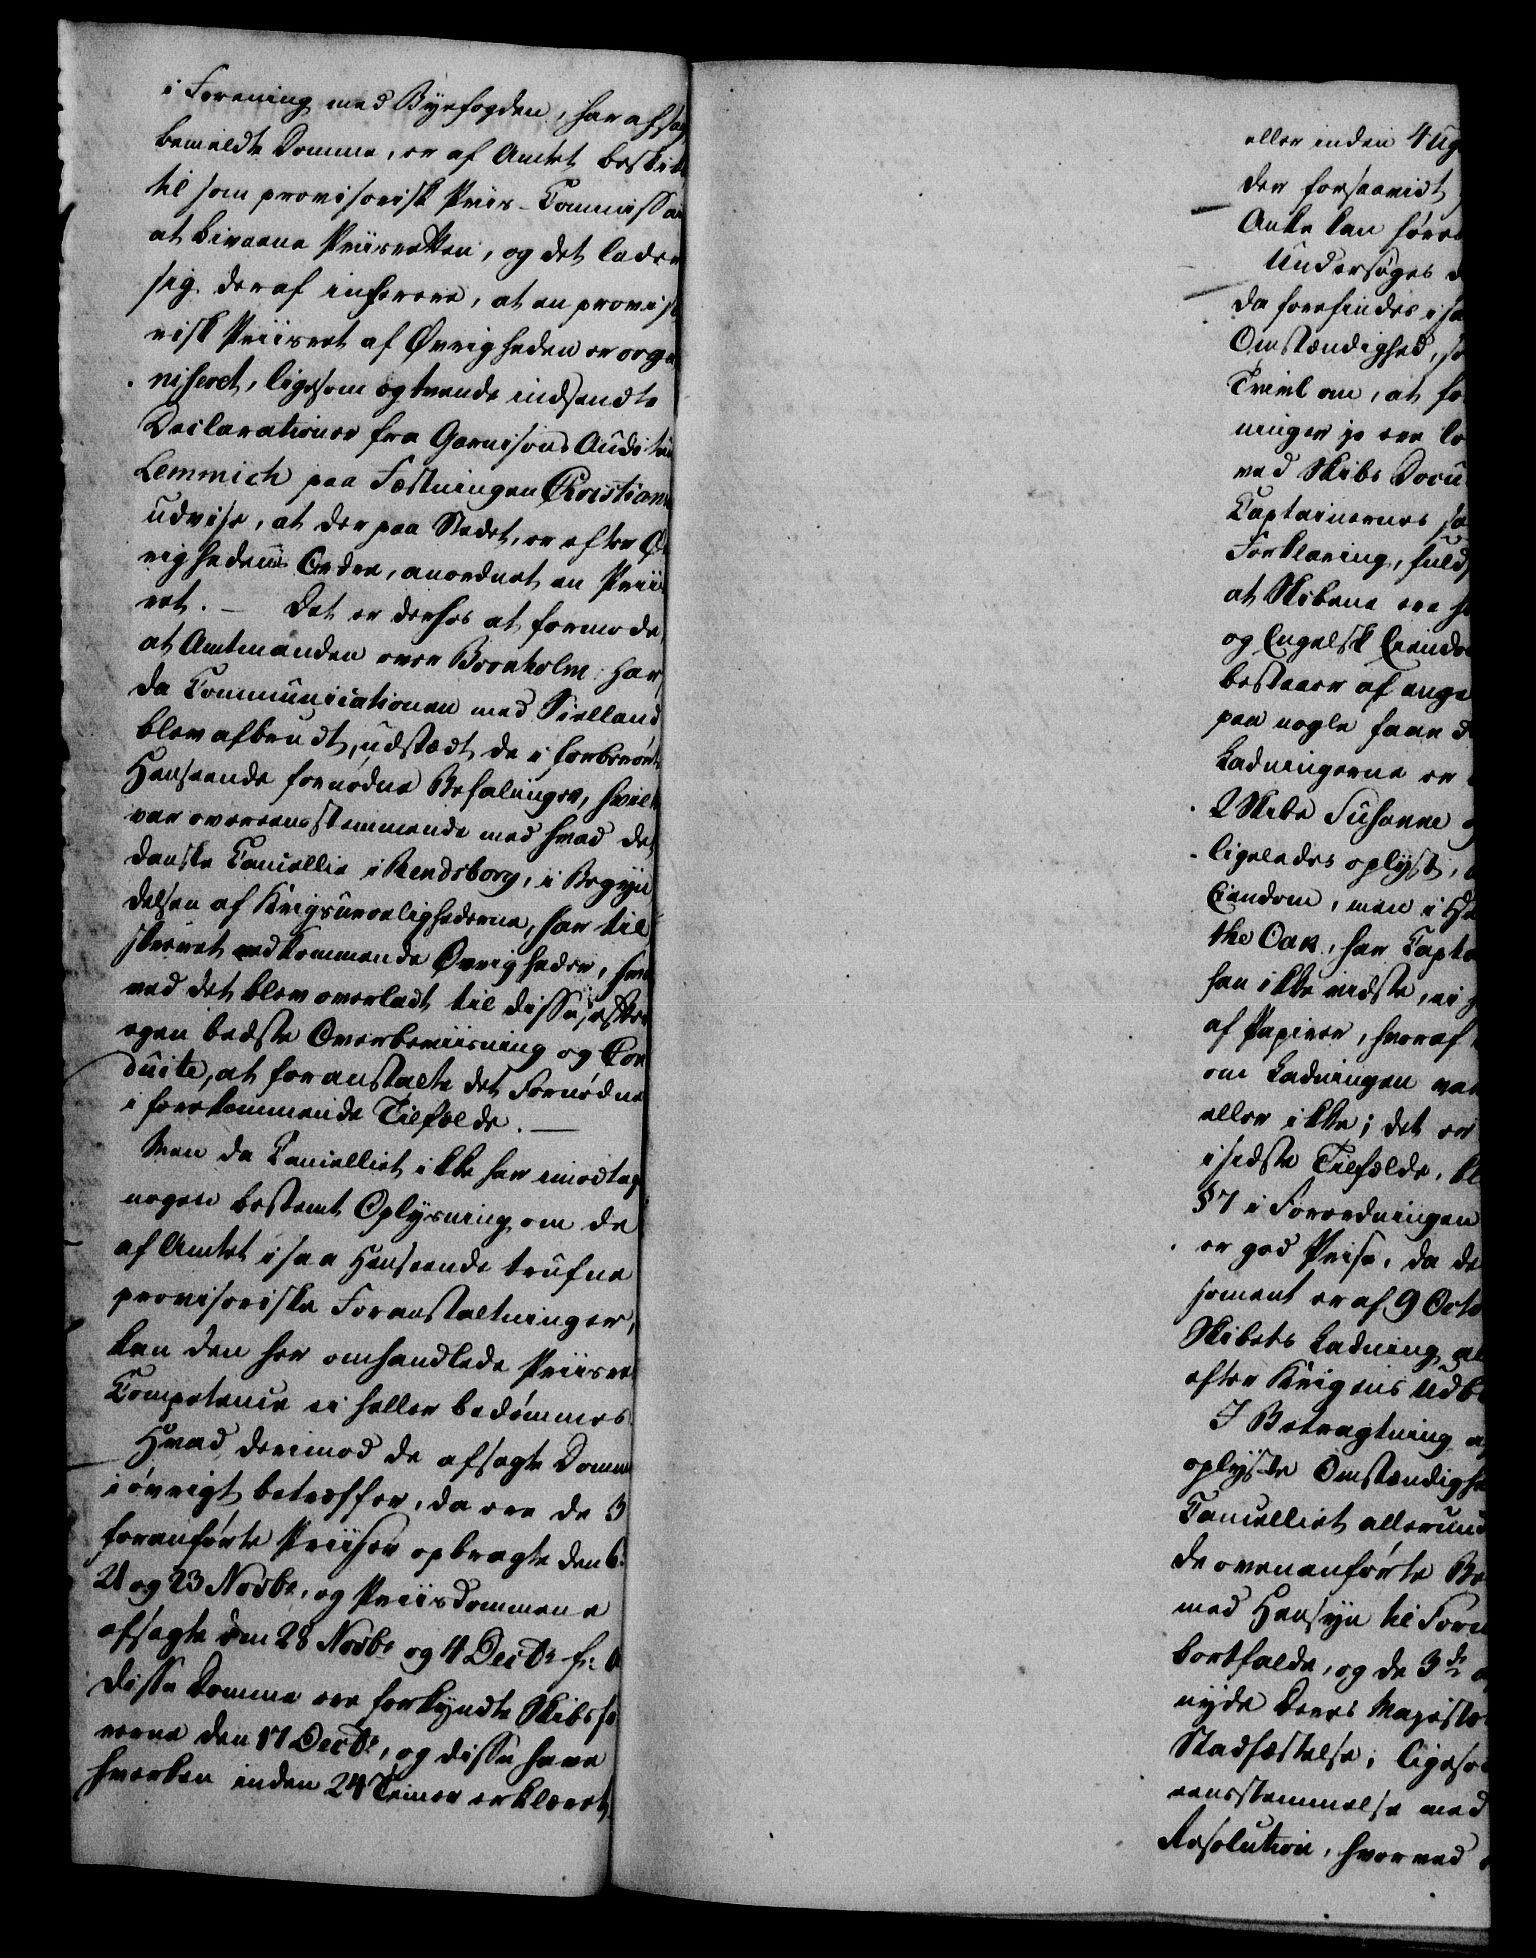 i Forening med Byefogden, har afsag
bemeldte Domme, er af Amtet beskik
til som provisorisk Priis-Commissair
at bivaane Priisretten, og det lader
sig deraf inferere, at en proviso
risk Priisret af Øvrigheden er orga
niseret, ligesom og tvende indsendte
Declarationer fra Garnisons Auditeur
Lemmich paa Fæstningen Christians
udvise, at der paa Stedet, er efter Øv
righedens Ordre, anordnet en Priis
ret. — Det er derhos at formode,
at Amtmanden over Bornholm har,
da Communicationen med Sielland
blev afbrudt, udstædt de i forberørte
Henseende fornødne Befalinger, hvilke
var overeensstemmende med hvad det
danske Cancellie i Rendsborg, i Begyn
delsen af Krigsuroelighederne, har til
skrevet vedkommende Øvrigheder, hvor
ved det blev overladt til disse, efter
egen bedste Overbeviisning og Con
duite, at foranstalte det Fornødne
i forekommende Tilfælde. —
Men da Cancelliet ikke har imodtag
nogen bestemt Oplysning om de
af Amtet i saa Henseende trufne
provisoriske Foranstaltninger,
kan den her omhandlede Priisrets
Competence ei heller bedømmes.
Hvad derimod de afsagte Domme
iøvrigt betræffer, da ere de 3
foranførte Priiser opbragte den 6.
21 og 23 Novbr, og Priisdommene
afsagte den 28 Novbr og 4 Decbr f: A
disse Domme ere forkyndte Skibsfø
rerne den 17 Decbr, og disse have
hverken inden 24 Timer erklæret,
eller inden 4 Ug
der forsaavidt
Anke kan føres
Undersøges d
da forefindes i sa
Omstændighed, so
Tvivl om, at fo
ninger jo ere lo
ved Skibs Docu
Captainernes sa
Forklaring, fuld
at Skibene ere h
og Engelsk Eiendo
bestaaer af enge
paa nogle faae d
Ladningerne er
2 Skibe Susanne o
ligeledes oplyst,
Eiendom, men i He
the Oak, har Capta
han ikke vidste, ei
af Papirer, hvoraf
om Ladningen var
eller ikke; det er
i sidste Tilfælde, bl
§ 7 i Forordningen
er god Prise, da de
soment er af 9 Octo
Skibets Ladning al
efter Krigens Udb
I Betragtning a
oplyste Omstændighe
Cancelliet allerund
de ovenanførte Be
med Hensyn til For
bortfalde, og de 3de
nyde Deres Majestæ
Stadfæstelse; ligeso
eensstemmelse med
Resolution, hvorved